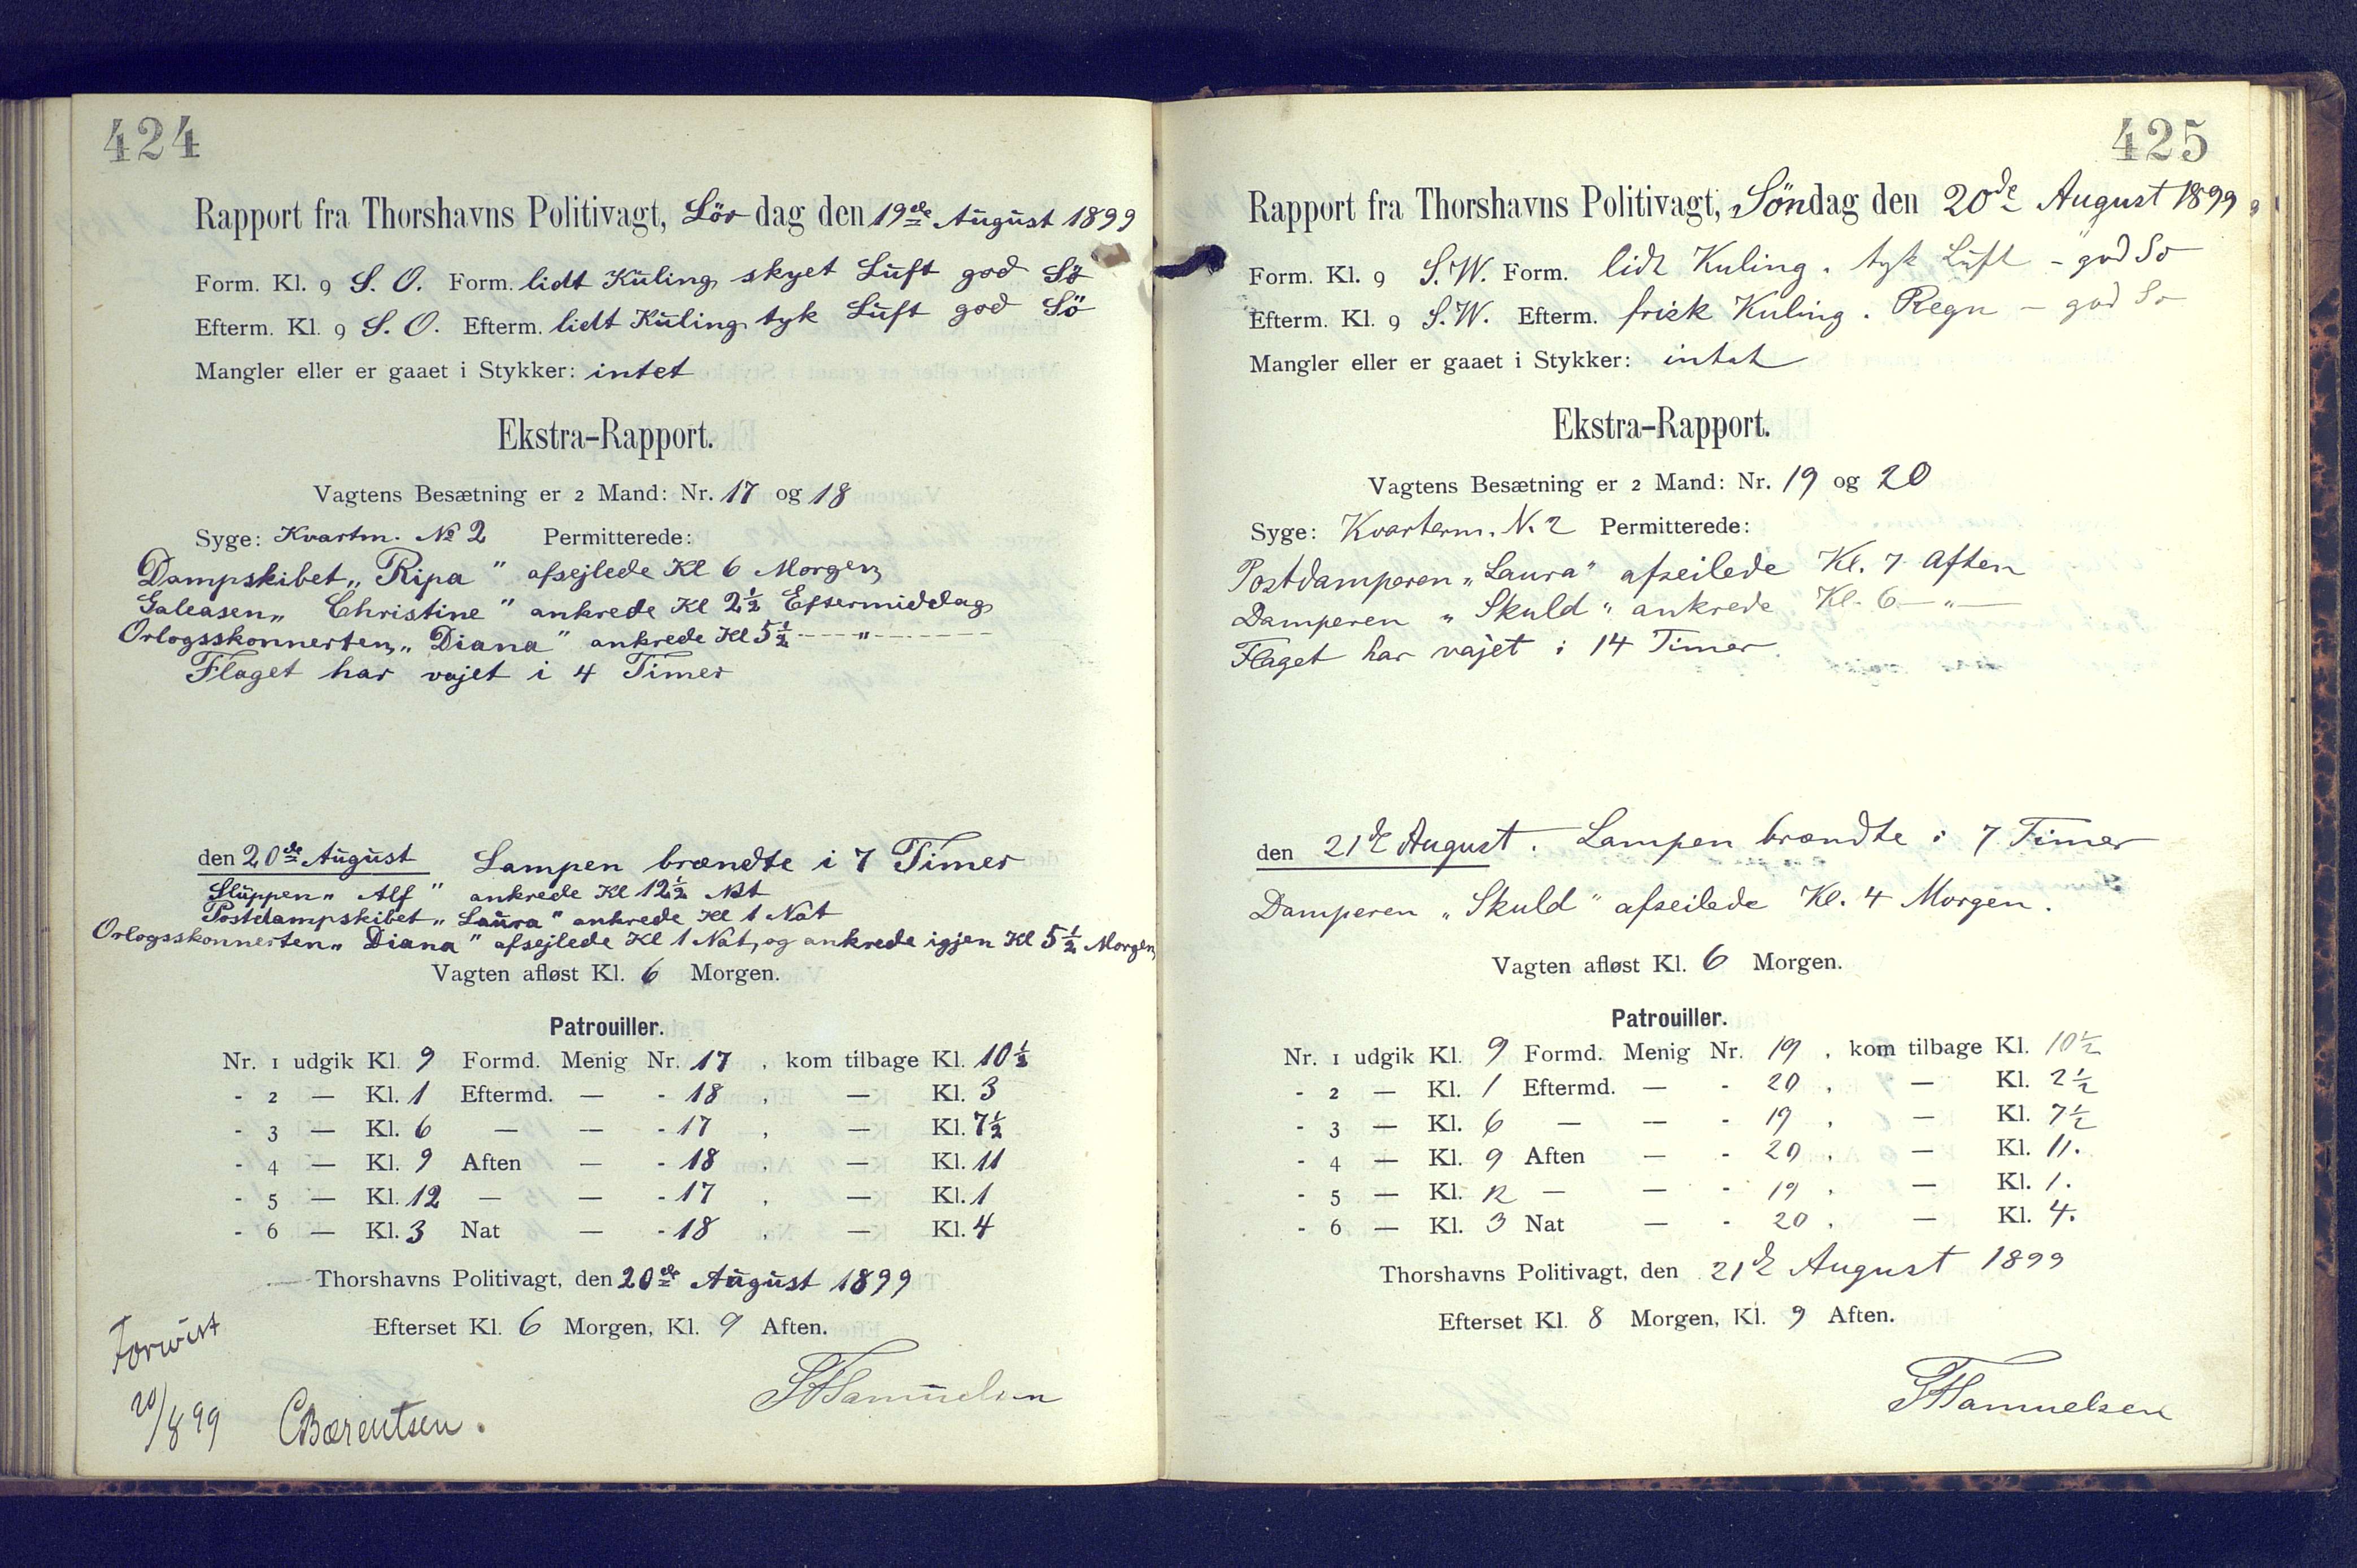 424
Rapport fra Thorshavns Politivagt, Lördag den 19de August 1899
Form. Kl. 9 S. O. Form. lidt Kuling, skyet Luft god Sö
Efterm. Kl. 9 S. O. Efterm. lidt Kuling tyk Luft god Sö
Mangler eller er gaaet i Stykker: intet
Ekstra-Rapport.
Vagtens Besætning er 2 Mand: Nr. 17 og 18
Syge: Kvartm. № 2 Permitterede:
Dampskibet „Ripa" afsejlede Kl 6 Morgen
Galeasen „Christine" ankrede Kl 2½ Eftermiddag
Orlogsskonnerten „Diana" ankrede Kl 5½ — „ —
Flaget har vajet i 4 Timer
den 20de August Lampen brændte i 7 Timer
Sluppen „Alf" ankrede Kl 12½ Nat
Postdampskibet „Laura" ankrede Kl 1 Nat
Orlogsskonnerten „Diana" afsejlede Kl 1 Nat, og ankrede igjen Kl 5½ Morgen
Vagten afløst Kl. 6 Morgen.
Patrouiller.
Nr. 1 udgik Kl. 9 Formd. Menig Nr. 17 , kom tilbage Kl. 10½
- 2 — Kl. 1 Eftermd. — - 18 , — Kl. 3
- 3 — Kl. 6 — — - 17 , — Kl. 7½
- 4 — Kl. 9 Aften — - 18 , — Kl. 11
- 5 — Kl. 12 — — - 17 , — Kl. 1
- 6 — Kl. 3 Nat — - 18 , — Kl. 4
Thorshavns Politivagt, den 20de August 1899
Efterset Kl. 6 Morgen, Kl. 9 Aften.
Forevist
20/8 99 CBærentsen.
Samuelsen
425
Rapport fra Thorshavns Politivagt, Söndag den 20de August 1899
Form. Kl. 9 S.W. Form. lidt Kuling. tyk Luft - god So
Efterm. Kl. 9 S.W. Efterm. frisk Kuling. Regn - god So
Mangler eller er gaaet i Stykker: intet
Ekstra-Rapport.
Vagtens Besætning er 2 Mand: Nr. 19 og 20
Syge: Kvarterm. N. 2 Permitterede:
Postdamperen „Laura" afseilede Kl. 7 Aften
Damperen „Skuld" ankrede Kl. 6 — „ —
Flaget har vajet i 14 Timer
den 21de August. Lampen brændte i 7 Timer
Damperen „Skuld" afseilede Kl. 4 Morgen.
Vagten afløst Kl. 6 Morgen.
Patrouiller.
Nr. 1 udgik Kl. 9 Formd. Menig Nr. 19 , kom tilbage Kl. 10½
- 2 — Kl. 1 Eftermd. — - 20 , — Kl. 2½
- 3 — Kl. 6 — — - 19 , — Kl. 7½
- 4 — Kl. 9 Aften — - 20 , — Kl. 11.
- 5 — Kl. 12 — — - 19 , — Kl. 1.
- 6 — Kl. 3 Nat — - 20 , — Kl. 4.
Thorshavns Politivagt, den 21de August 1899
Efterset Kl. 8 Morgen, Kl. 9 Aften.
Samuelsen